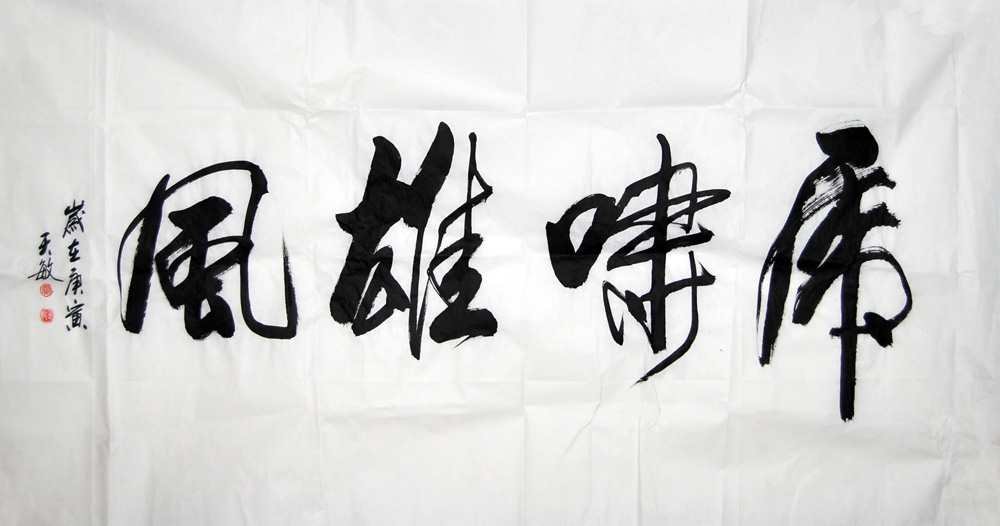 虎啸雄風
歲在庚寅
天敏